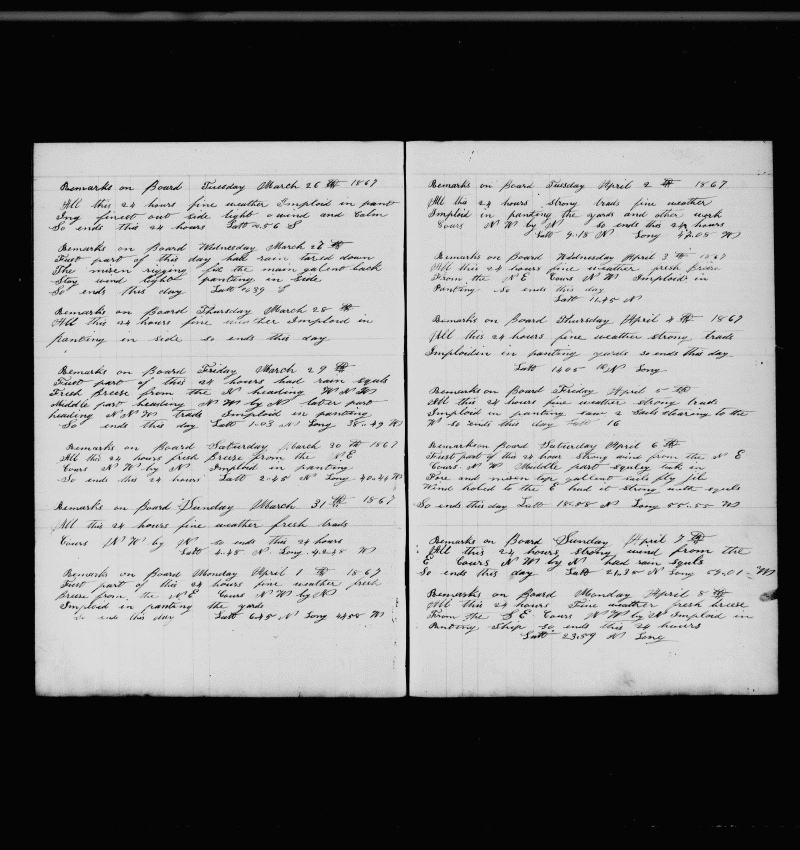 Remarks on Board Tuesday March 26 th 1867
All this 24 hours fine weather Imploid in pant
Ing finest out side light wind and Calm
So ends this 24 hours Latt 2.56 S
Remarks on Board Wednesday March 27 th
First part of this day had rain, tared down
The misen riging fix the main galent back
Stay wind light panting in side
So ends this day Latt 39 S
Remarks on Board Thursday March 28 th
All this 24 hours fine weather Imploid in
panting in side so ends this day
Remarks on Board Friday March 29 th
First part of this 24 hours had rain squls
Fresh Breeze from the heading W N W
Middle part heading N W by N later part
heading N N W trade Imploid in panting
So ends this day Latt 1.03 N Long 38.49 W
Remarks on Board Saturday March 30 th 1867
All this 24 hours fresh Breeze from the N.E
Cours N W by N Imploid in panting
So ends this 24 hours Latt 2.45 N Long 40.44 W
Remarks on Board Sunday March 31 th 1867
All this 24 hours fine weather fresh trads
Cours N W by N so ends this 24 hours
Latt 4.45 N Long 42.48 W
Remarks on Board Monday April 1 th 1867
First part of this 24 hours fine weather fresh
Breeze from the N E Cours N W by N
Imploid in panting the yards
So ends this day Latt 6.45 N Long 44.58 W
Remarks on Board Tuesday April 2 th 1867
All this 24 hours strong trads fine weather
Imploid in panting the yards and other work
Cours N W by N so ends this 24 hours
Latt 9.18 N Long 47.05 W
Remarks on Board Wednesday April 3 th 1867
All this 24 hours fine weather fresh Breeze
From the N E Cours N W Imploid in
Panting So ends this day
Latt 11.45 N
Remarks on Board Thursday April 4 th 1867
All this 24 hours fine weather strong trads
Imploiden in panting yards so ends this day
Latt 14.05 N Long
Remarks on Board Friday April 5 th
All this 24 hours fine weather strong trads
Imploid in panting saw 2 Sails stearing to the
W so ends this day Latt 16
Remarks on Board Saturday April 6 th
First part of this 24 hour strong wind from the N E
Cours N W Muddle part squley tuk in
Fore and main top gallent sails fly jib
Wind holed to the E had it strong with squls
So ends this day Latt 18.58 N Long 55.55 W
Remarks on Board Sunday April 7 th
All this 24 hours strong wind from the
E Cours N W by N had rain squls
So ends this day Latt 21.35 N Long 59.01 W
Remarks on Board Monday April 8 th
All this 24 hours Fine weather fresh breeze
From the S E Cours N W by N Imploid in
Panting Ship so ends this 24 hours
Latt 23.59 N Long